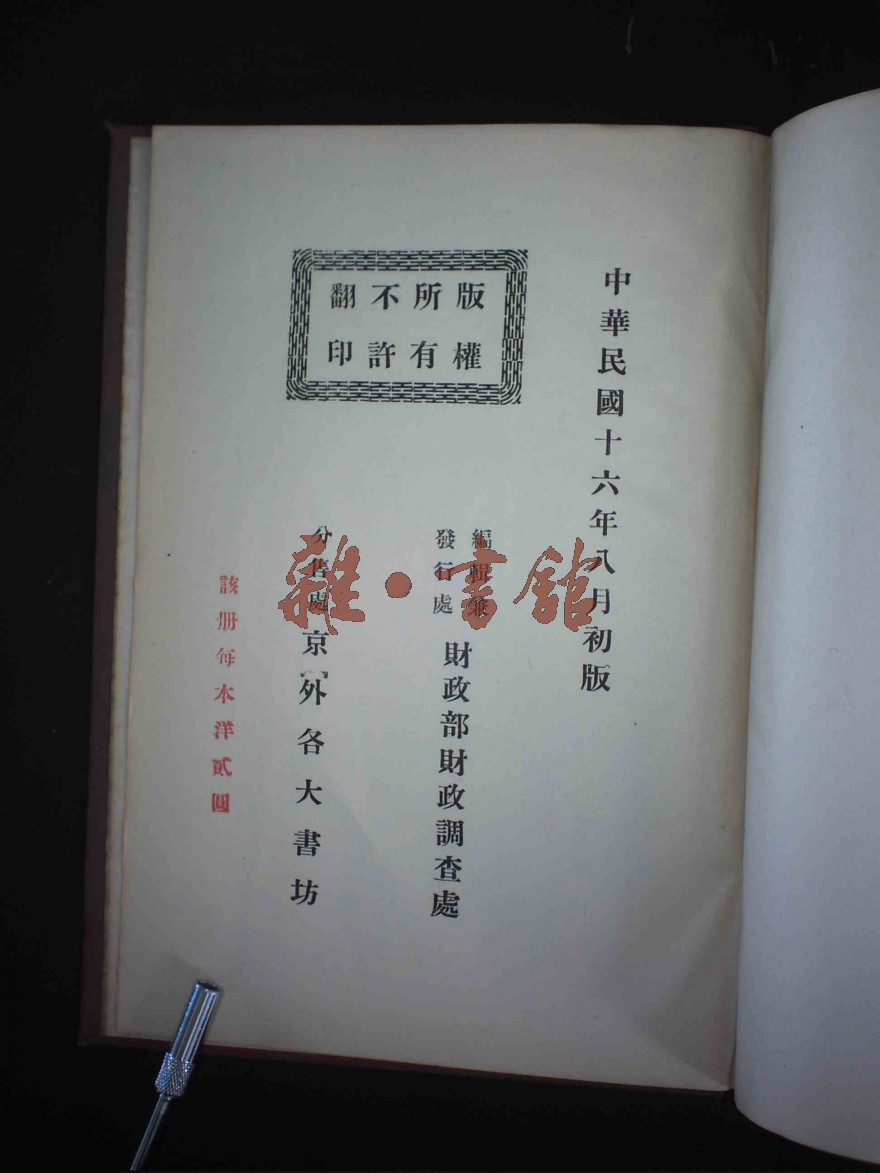 中華民國十六年八月初版
版權所有不許翻印
編輯兼
發行處
財政部財政調查處
分售處
京外各大書坊
該册每本洋貳圓
雜·書館